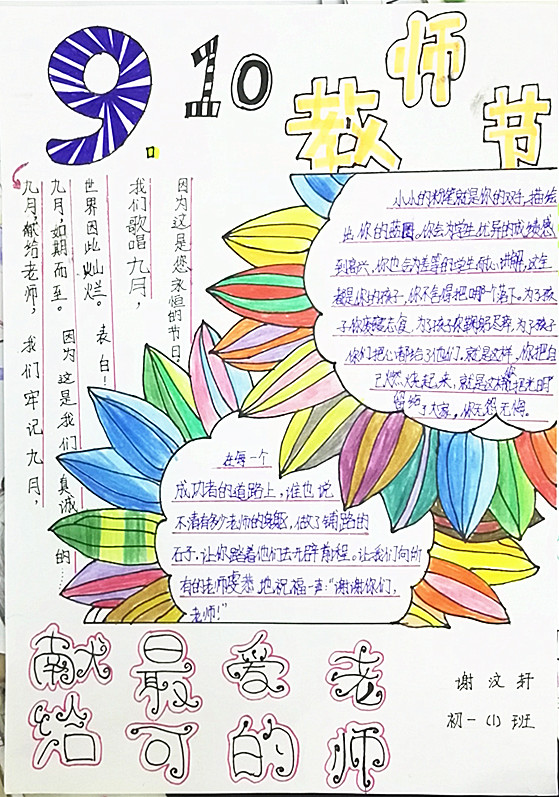 9.10
教师节
因为这是您永恒的节日,
我们歌唱九月,
世界因此灿烂。表白!
九月如期而至。因为这是我们真诚的……
九月献给老师,我们牢记九月,
小小的粉笔就是你的对,描绘
出你的蓝图。你会为学生优异的成绩感
到高兴,你也会为差等的学生耐心讲解,这
都是你的孩子,你不舍得把哪个落下。为了孩
子你废寝忘食,为了孩子你鞠躬尽瘁,为了孩子
你们把心都给了他们,就是这样,你把自
己燃烧起来,就是这样把光明
留给了大家,你无怨无悔。
在每一个
成功者的道路上,谁也说
不清有多少老师的身躯,做了铺路的
石子,让你踏着他们去开辟前程。让我们向所
有的老师恭地祝福一声:"谢谢你们,
老师!"
献给最可爱的老师
谢汶轩
初一(1)班